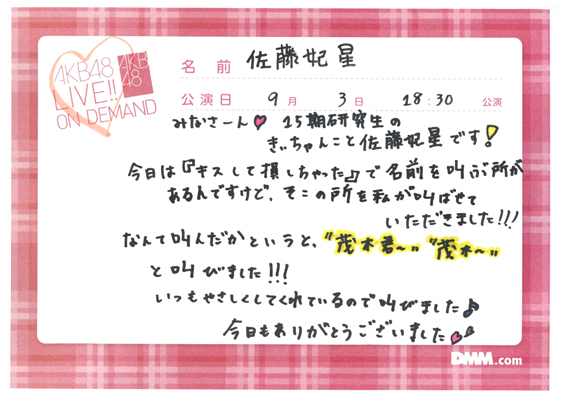 AKB48
LIVE!!
ON DEMAND
AKB
48
名前 佐藤妃星
公演日 9月 3日 18:30 公演
みなさーん♥ 15期研究生の
きぃちゃんこと佐藤妃星です!
今日は『キスして損しちゃった』で名前を叫ぶ所が
あるんですけど、そこの所を私が叫ばせて
いただきました!!!
なんて叫んだかというと、"茂木君〜" "茂木〜"
と叫びました!!!
いつもやさしくしてくれているので叫びました♪
今日もありがとうございました♥
DMM.com